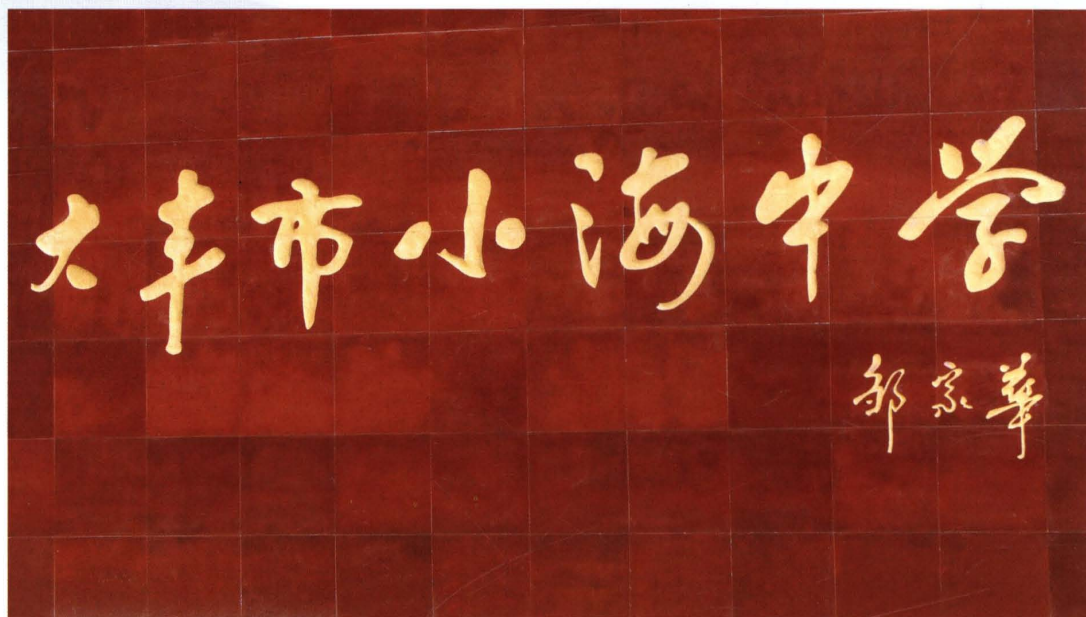 大丰市小海中学
邹家华